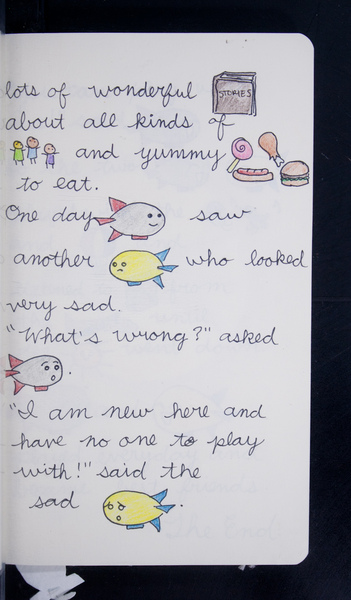 lots of wonderful STORIES
about all kinds of
and yummy
to eat.
One day saw
another who looked
very sad.
"What's wrong?" asked
.
"I am new here and
have no one to play
with!" said the
sad .